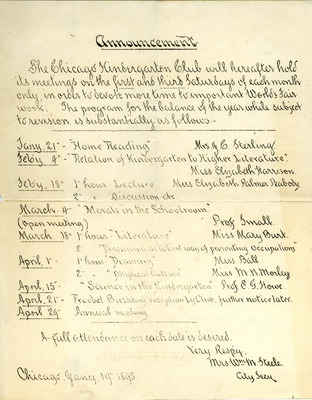 Announcement.
The Chicago Kindergarten Club will hereafter hold
its meetings on the first and third Saturdays of each month
only, in order to devote more time to important World's Fair
work. The program for the balance of the year while subject
to revision, is substantially as follows:-
Jany. 21st - "Home Reading" Mrs J. C. Sterling
Feby. 4th - "Relation of Kindergarten to Higher Literature"
Miss Elizabeth Harrison
Feby. 18th 1st hour Lecture Miss Elizabeth Palmer Peabody
2d " Discussion etc.
March 4th "Morals in the Schoolroom"
(Open meeting) Prof Small
March. 18th 1st hour "Literature" Miss Mary Burt.
2d " "Discussion as to best way of presenting Occupations"
April. 1st - 1st hour "Drawing" Miss Ball
2d " "Physical Culture" Miss M. N. Morley
April. 15th - "Science in the Kindergarten" Prof E. G. Howe.
April. 21st - Froebel Birthday reception by Club, further notice later.
April 29th Annual meeting
A full attendance on each date is desired.
Very Respy.
Mrs Wm M. Steele.
Chicago Jany 19th 1893. City Secy.